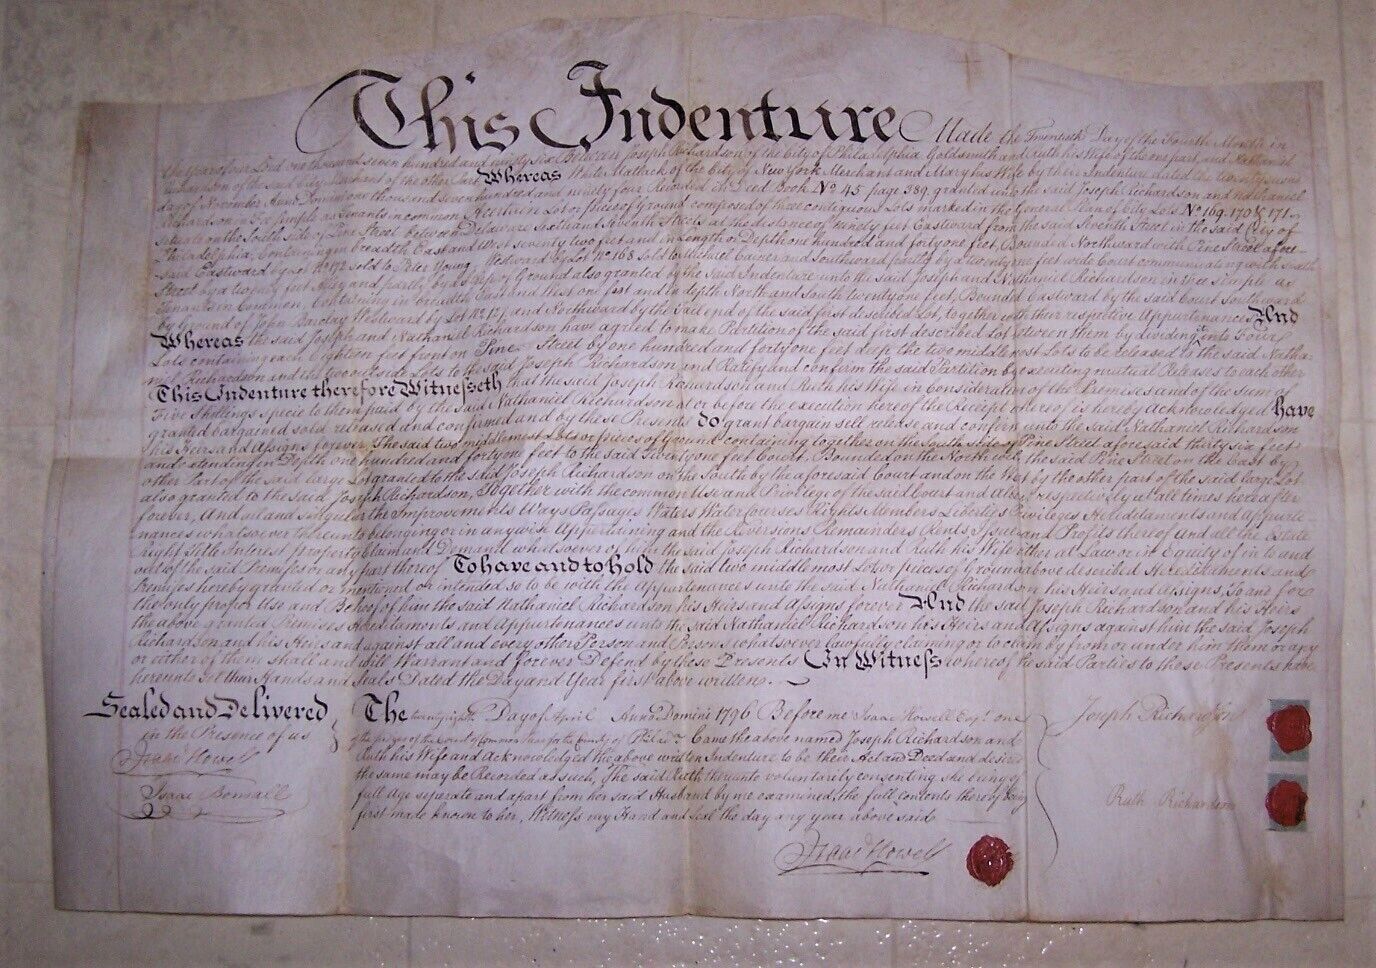 This Indenture Made the Twentieth Day of the Fourth Month in
the Year of our Lord one thousand seven hundred and ninety six Between Joseph Richardson of the City of Philadelphia Goldsmith and Ruth his Wife of the one part, and Nathaniel
Richardson of the said City Merchant of the other Part Whereas Matlack of the City of New York Merchant and Mary his Wife by their Indenture dated the twenty
day of November Anno Domini one thousand seven hundred and ninety four Recorded in Deed Book No 45 page 389 granted unto the said Joseph Richardson and Nathaniel
Richardson in Fee Simple as Tenants in common A certain Lot or piece of Ground composed of three contiguous Lots marked in the General Plan of City Lots No 169. 170 & 171
situate on the South side of Pine Street between Delaware Sixth and Seventh Streets at the distance of Ninety feet Eastward from the said Seventh Street in the said City of
Philadelphia, Containing in breadth East and West seventy two feet and in Length or Depth one hundred and forty one feet, Bounded Northward with Pine Street afore-
said Eastward by Lot No 172 sold to Peter Young Westward by Lot No 168 sold to Michael and Southward partly by a twenty one feet wide Court communicating with
Street by a twenty feet Alley and partly by a Strip of Ground also granted by the said Indenture unto the said Joseph and Nathaniel Richardson in Fee simple as
Tenants in Common, Containing in breadth East and West one foot and in depth North and South twenty one feet, Bounded Eastward by the said Court Southward
by Ground of John Barclay Westward by Lot No and Northward by the said end of the said first described Lot, together with their respective Appurtenances And
Whereas the said Joseph and Nathaniel Richardson have agreed to make Partition of the said first described Lot between them by dividing it into Four
Lots containing each eighteen feet front on Pine Street by one hundred and forty one feet deep the two middlemost Lots to be released to the said Natha-
niel Richardson and the two outside Lots to the said Joseph Richardson and Ratify and confirm the said Partition by executing mutual Releases to each other
This Indenture therefore Witnesseth that the said Joseph Richardson and Ruth his Wife in Consideration of the Premises and of the sum of
Five Shillings specie to them paid by the said Nathaniel Richardson at or before the execution hereof the Receipt whereof is hereby Acknowledged have
granted bargained sold released and confirmed and by these Presents do grant bargain sell release and confirm unto the said Nathaniel Richardson
His Heirs and Assigns forever, The said two middlemost Lots or pieces of Ground containing together on the South side of Pine Street aforesaid thirty six feet
and extending in Depth one hundred and forty one feet to the said Twenty one feet Court. Bounded on the North with the said Pine Street on the East by
other Part of the said large Lot granted to the said Joseph Richardson on the South by the aforesaid Court and on the West by the other part of the said large Lot
also granted to the said Joseph Richardson, Together with the common Use and Privilege of the said Court and Alley respectively at all times hereafter
forever, And all and singular the Improvements Ways Passages Waters Watercourses Rights Members Liberties Privileges Hereditaments and Appurte-
nances whatsoever thereunto belonging or in anywise Appertaining and the Reversions Remainders Rents Issues and Profits thereof And all the Estate
right Title Interest property claim and Demand whatsoever of the said Joseph Richardson and Ruth his Wife either at Law or in Equity of in to and
out of the said Premises or any part thereof To have and to hold the said two middlemost Lots or pieces of Ground above described Hereditaments and
Premises hereby granted or mentioned or intended so to be with the Appurtenances unto the said Nathaniel Richardson his Heirs and Assigns, To and for
the only proper Use and Behoof of him the said Nathaniel Richardson his Heirs and Assigns forever And the said Joseph Richardson and his Heirs
the above granted Premises Hereditaments and Appurtenances unto the said Nathaniel Richardson his Heirs and Assigns against him the said Joseph
Richardson and his Heirs and against all and every other Person and Persons whatsoever lawfully claiming or to claim by from or under him them or any
or either of them shall and will Warrant and forever Defend by these Presents In Witness whereof the said Parties to these Presents have
hereunto set their Hands and Seals Dated the Day and Year first above written.
Sealed and Delivered
in the Presence of us
Isaac Howell
Isaac Bonsall
The twenty eighth Day of April Anno Domini 1796 Before me Isaac Howell Esqr. one
of the Judges of the Court of Common Pleas for the County of Philada. Came the above named Joseph Richardson and
Ruth his Wife and Acknowledged the above written Indenture to be their Act and Deed and desired
the same may be Recorded as such, The said Ruth thereunto voluntarily consenting she being of
full Age separate and apart from her said Husband by me examined, the full contents thereof being
first made known to her, Witness my Hand and Seal the day any year above said
Isaac Howell
Joseph Richardson
Ruth Richardson